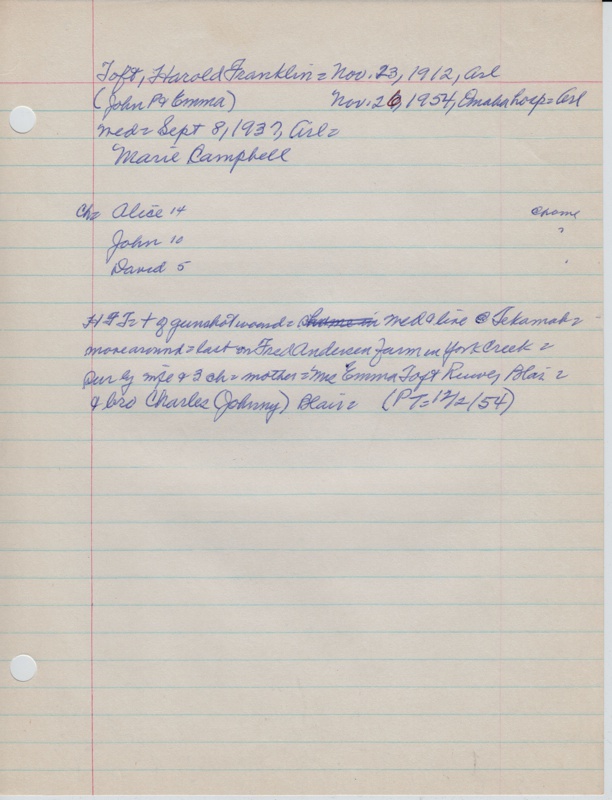 Toft, Harold Franklin = Nov. 23, 1912, Arl
(John P & Emma) Nov. 26, 1954, Omaha hosp = Arl
Med = Sept 8, 1937, Arl =
Marie Campbell
Ch = Alice 14 @home
John 10 "
David 5 "
HFT = + of gunshot wound = home in Med & live @ Tekamah =
move around = last on Fred Andersen farm in York Creek =
Sur by wife & 3 ch = mother = Mrs Emma Toft Blair =
& bro Charles (Johnny) Blair = (PT = 12/2/54)